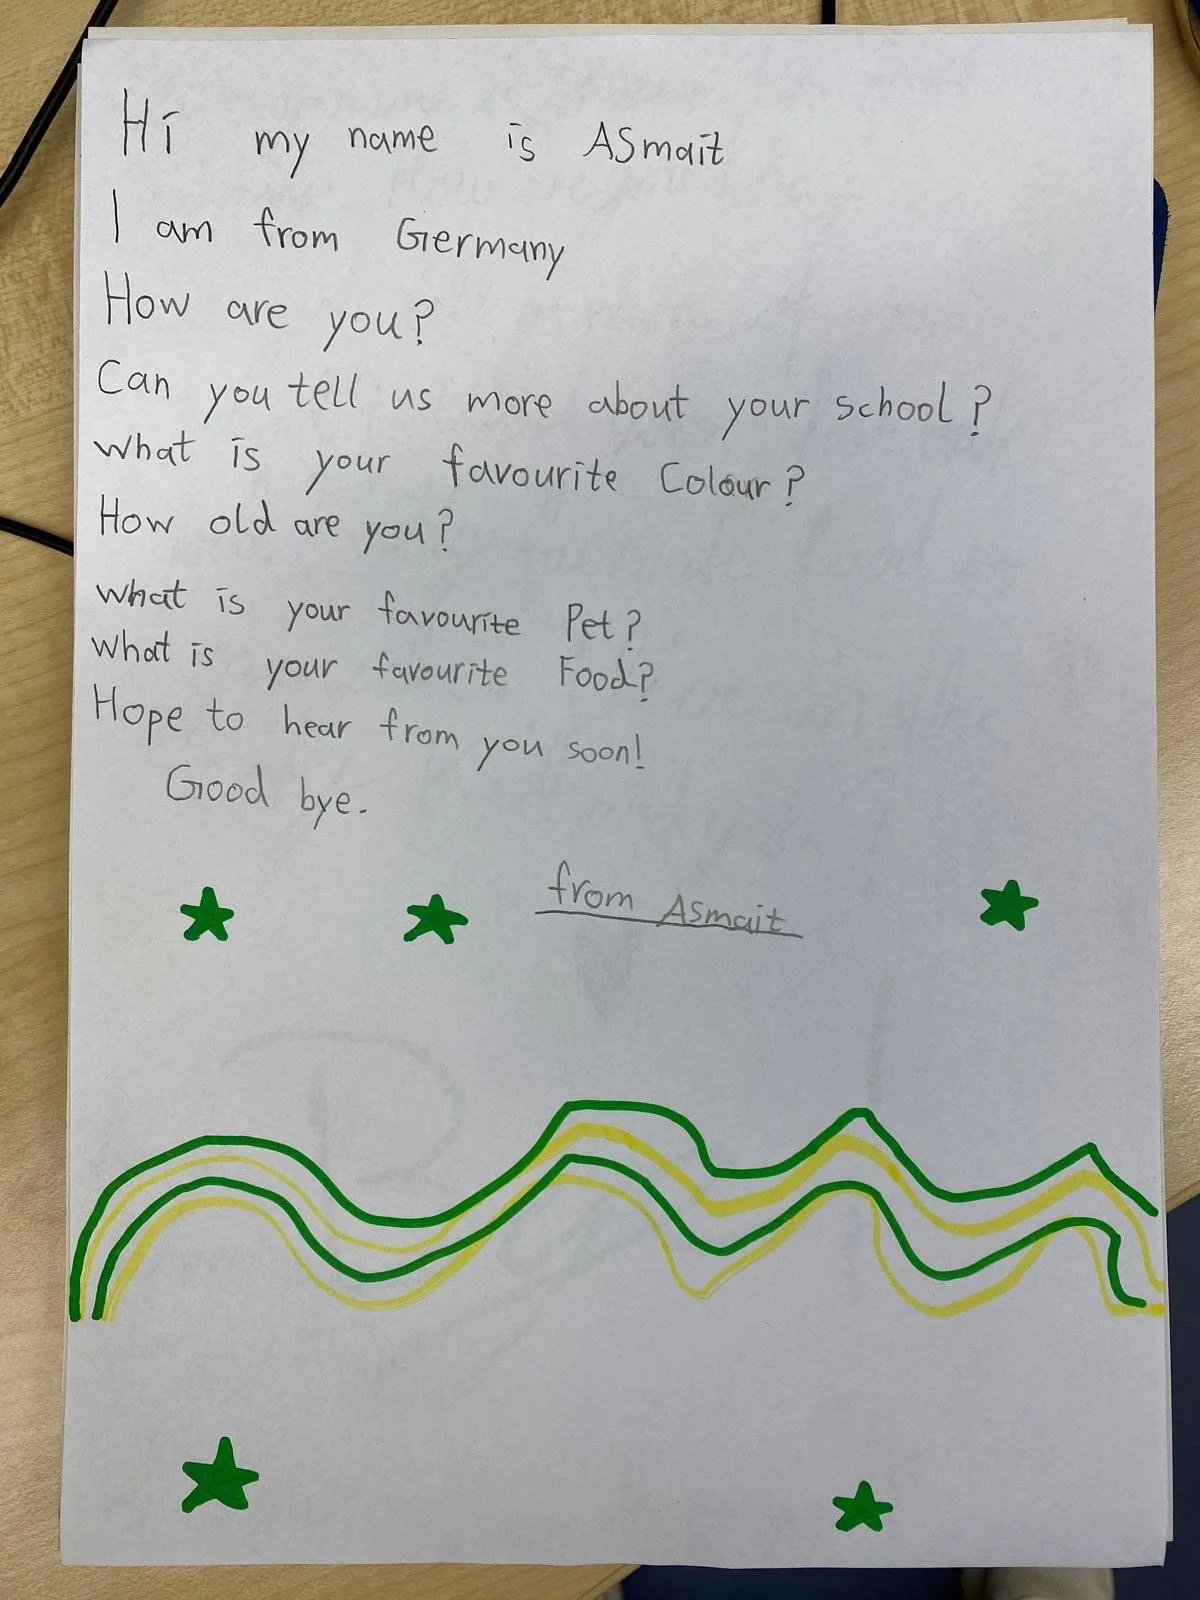 Hi my name is ASmait
I am from Germany
How are you?
Can you tell us more about your school?
what is your favourite Colour?
How old are you?
what is your favourite Pet?
what is your favourite Food?
Hope to hear from you soon!
Good bye.
from ASmait